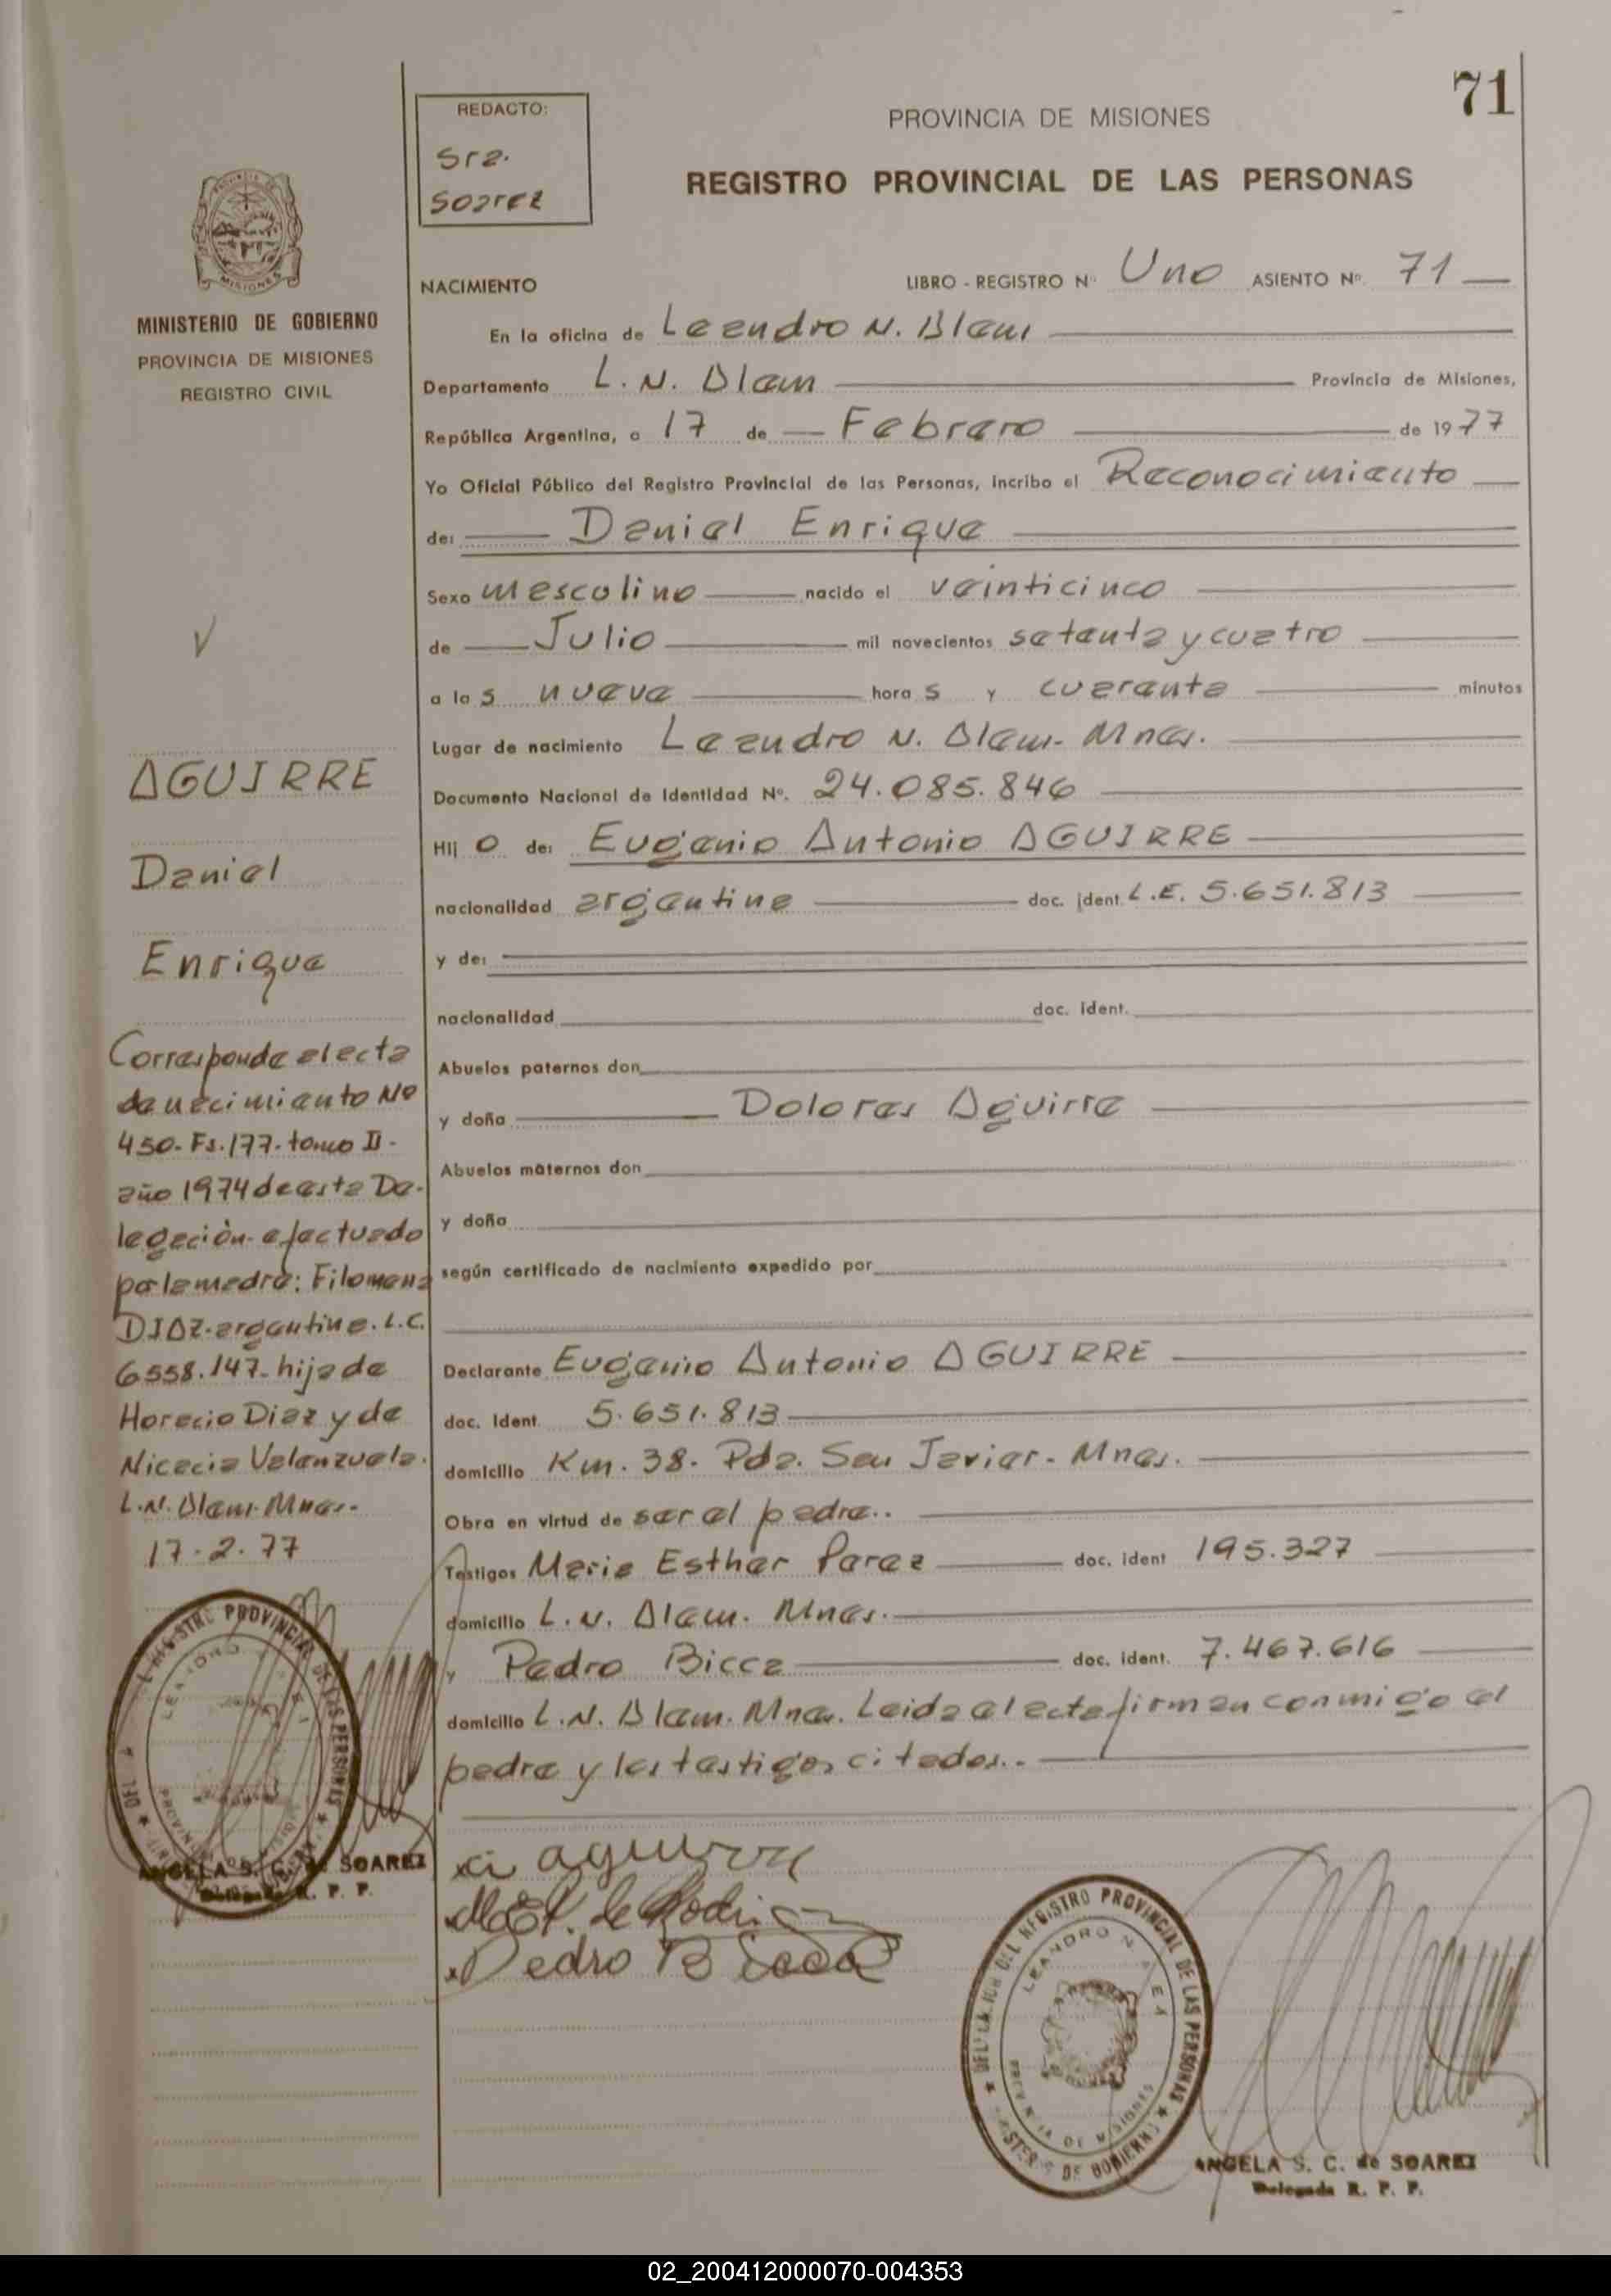 71
REDACTO:
Sra.
Soarez
PROVINCIA DE MISIONES
REGISTRO PROVINCIAL DE LAS PERSONAS
MINISTERIO DE GOBIERNO
PROVINCIA DE MISIONES
REGISTRO CIVIL
NACIMIENTO LIBRO - REGISTRO Nº Uno ASIENTO Nº. 71
En la oficina de Leandro N. Alem
Departamento L. N. Alem Provincia de Misiones,
República Argentina, a 17 de Febrero de 1977
Yo Oficial Público del Registro Provincial de las Personas, incribo el Reconocimiento
de: Daniel Enrique
Sexo masculino nacido el veinticinco
de Julio mil novecientos setenta y cuatro
a las nueve horas y cuarenta minutos
Lugar de nacimiento Leandro N. Alem. Mnes.
Documento Nacional de Identidad Nº. 24.085.846
Hijo de: Eugenio Antonio AGUIRRE
nacionalidad argentina doc. ident. L.E. 5.651.813
y de:
nacionalidad doc. ident.
Abuelos paternos don
y doña Dolores Aguirre
Abuelos maternos don
y doña
según certificado de nacimiento expedido por
Declarante Eugenio Antonio AGUIRRE
doc. ident. 5.651.813
domicilio Km. 38. Pda. San Javier. Mnes.
Obra en virtud de ser el padre..
Testigos Maria Esther Perez doc. ident 195.327
domicilio L. N. Alem. Mnes.
y Pedro Bicca doc. ident. 7.467.616
domicilio L. N. Alem. Mnes. Leida el acta firman conmigo el
padre y los testigos citados..
AGUIRRE
Daniel
Enrique
Corresponde al acta
de nacimiento Nº
450. Fs. 177. tomo II.
año 1974 de esta De-
legación efectuado
por la madre: Filomena
DIAZ. argentina. L.C.
6558.147. hija de
Horacio Diaz y de
Nicacia Valenzuela.
L.N. Alem. Mnes.
17-2-77
ANGELA S. C. de SOAREZ
Delegada R. P. P.
aguirre
Pedro Bicca
DEL REGISTRO PROVINCIAL DE LAS PERSONAS
LEANDRO N.
PROVINCIA DE MISIONES
MINISTERIO DE GOBIERNO
ANGELA S. C. de SOAREZ
Delegada R. P. P.
02_200412000070-004353